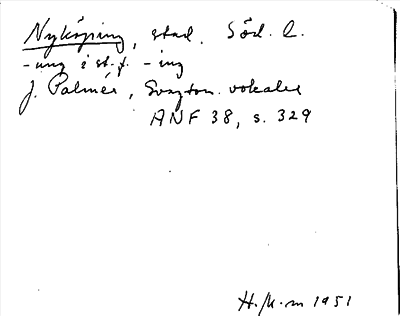 Nyköping, stad. Söd. l.
-ung i st. f. -ing
J. Palmér, Svagton. vokaler
ANF 38, s. 329
H. M-m 1951